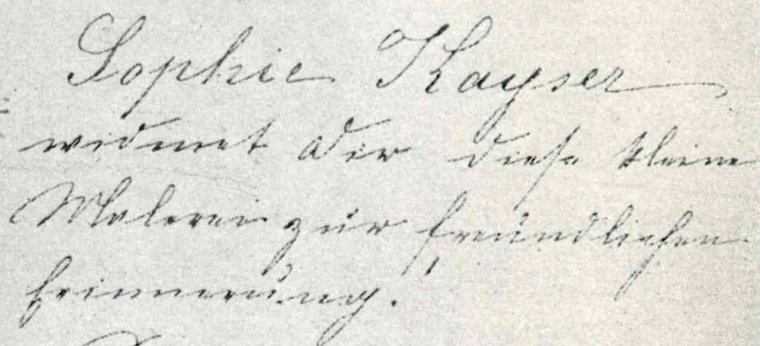 Sophie Kayser
widmet Dir diese kleine
Malerei zur freundlichen
Erinnerung.